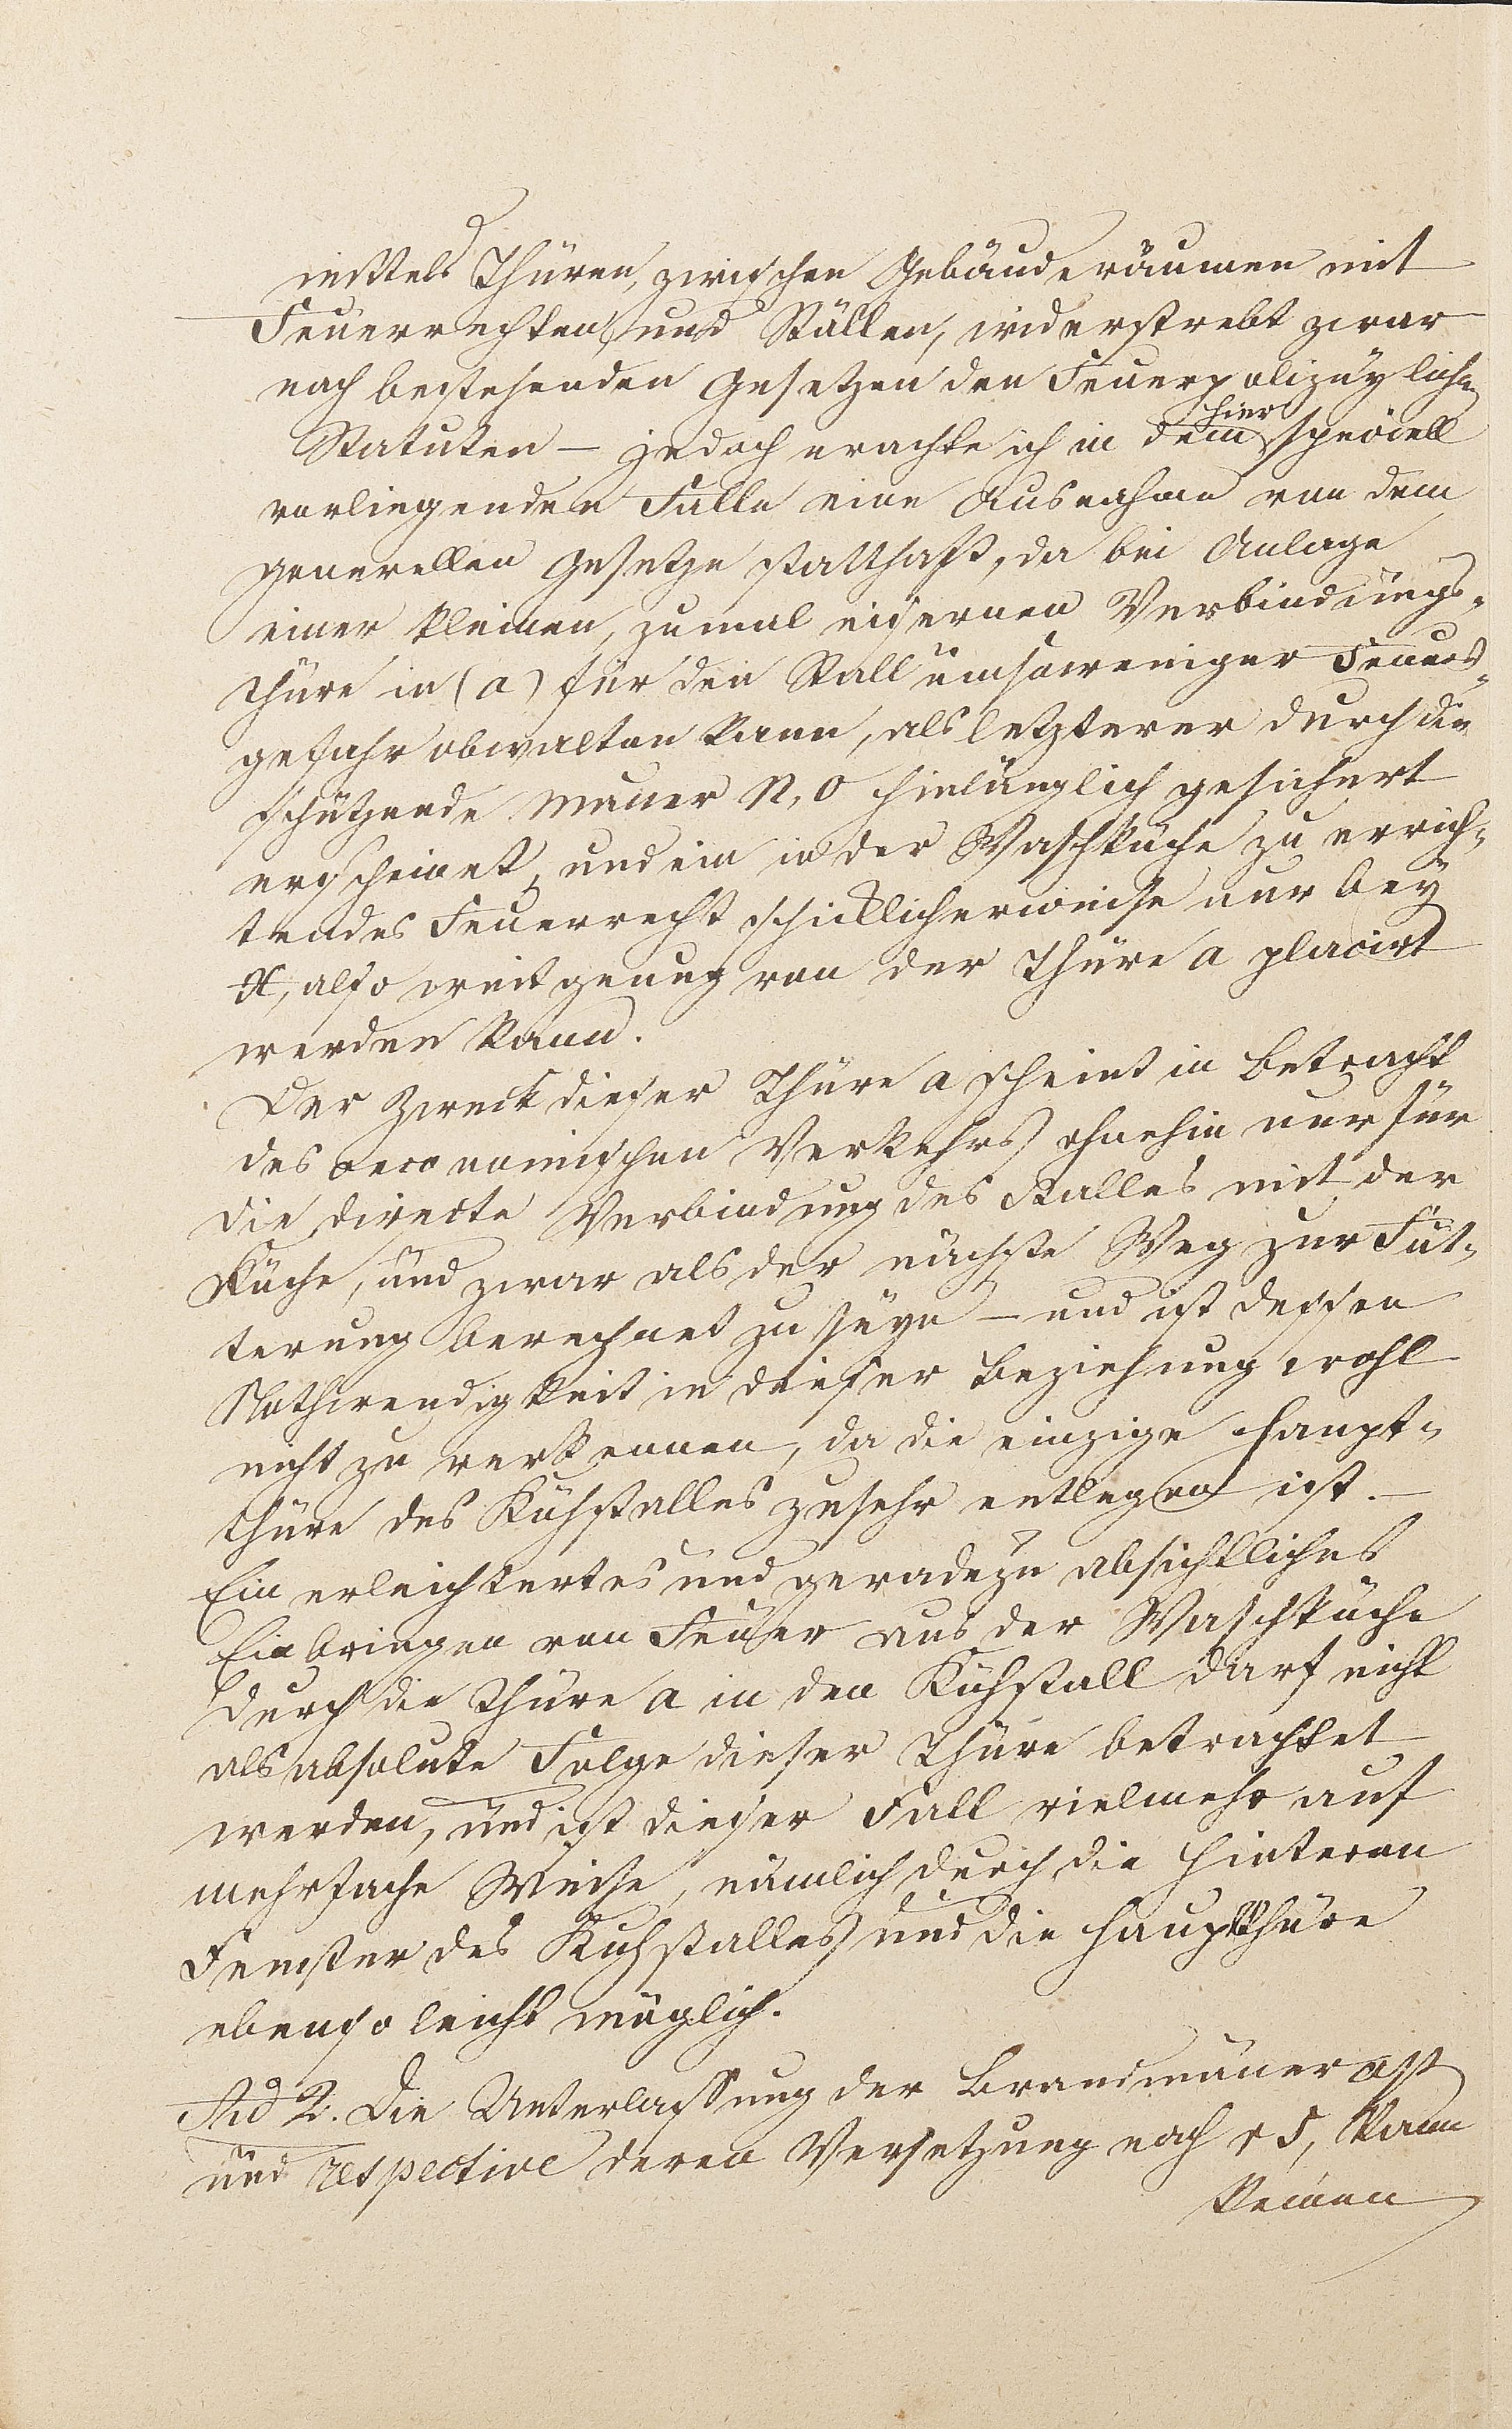 mittels Thüren, zwischen Gebäuderäumen mit
Feuerrechten und Ställen, widerstrebt zwar
nach bestehenden Gesetzen den Feuerpolizeylichen
Statuten – jedoch erachte ich in dem hier speciell
vorliegenden Falle eine Ausnahme von dem
generellen Gesetze statthaft, da bei Anlage
einer kleinen, zumal eisernen Verbindungs-
thüre in (a) für den Stall umsoweniger Feuers-
gefahr obwalten kann, als letzterer durch die
schützende Mauer N, O hinlänglich gesichert
erscheinet, und ein in der Waschküche zu errich-
tendes Feuerrecht schicklicherweise nur bey
X, also weit genug von der Thüre a placirt
werden kann.
Der Zweck dieser Thüre a scheint in Betracht
des oeconomischen Verkehrs ohnehin nur für
die directe Verbindung des Stalles mit der
Küche, und zwar als der nächste Weg zur Füt-
terung berechnet zu seyn – und ist dessen
Nothwendigkeit in dieser Beziehung wohl
nicht zu verkennen, da die einzige Haupt-
thüre des Kühstalles zusehr entlegen ist. –
Ein erleichtertes und geradezu absichtliches
Einbringen von Feuer aus der Waschküche
durch die Thüre a in den Kühstall darf nicht
als absolute Folge dieser Thüre betrachtet
werden, und ist dieser Fall vielmehr auf
mehrfache Weise, nämlich durch die hinteren
Fenster des Kuhstalles und die Hauptthüre
ebenso leicht möglich.
Ad 2. Die Unterlassung der Brandmauer
und respective deren Versetzung nach r s, kann
keinen